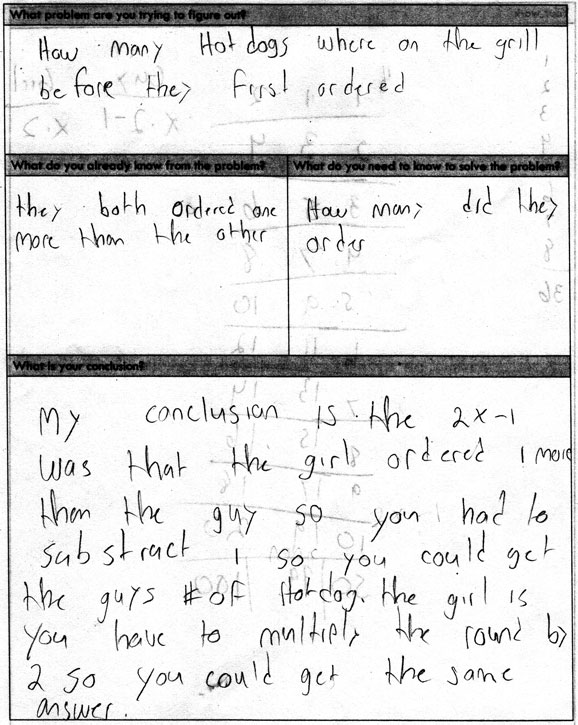 What problem are you trying to figure out?
How many Hotdogs where on the grill
before they first ordered
What do you already know from the problem?
What do you need to know to solve the problem?
they both ordered one
more than the other
How many did they
order
What is your conclusion?
My conclusion is the 2x-1
was that the girl ordered 1 more
than the guy so you had to
substract 1 so you could get
the guys # of Hotdog. the girl is
you have to multiply the round by
2 so you could get the same
answer.